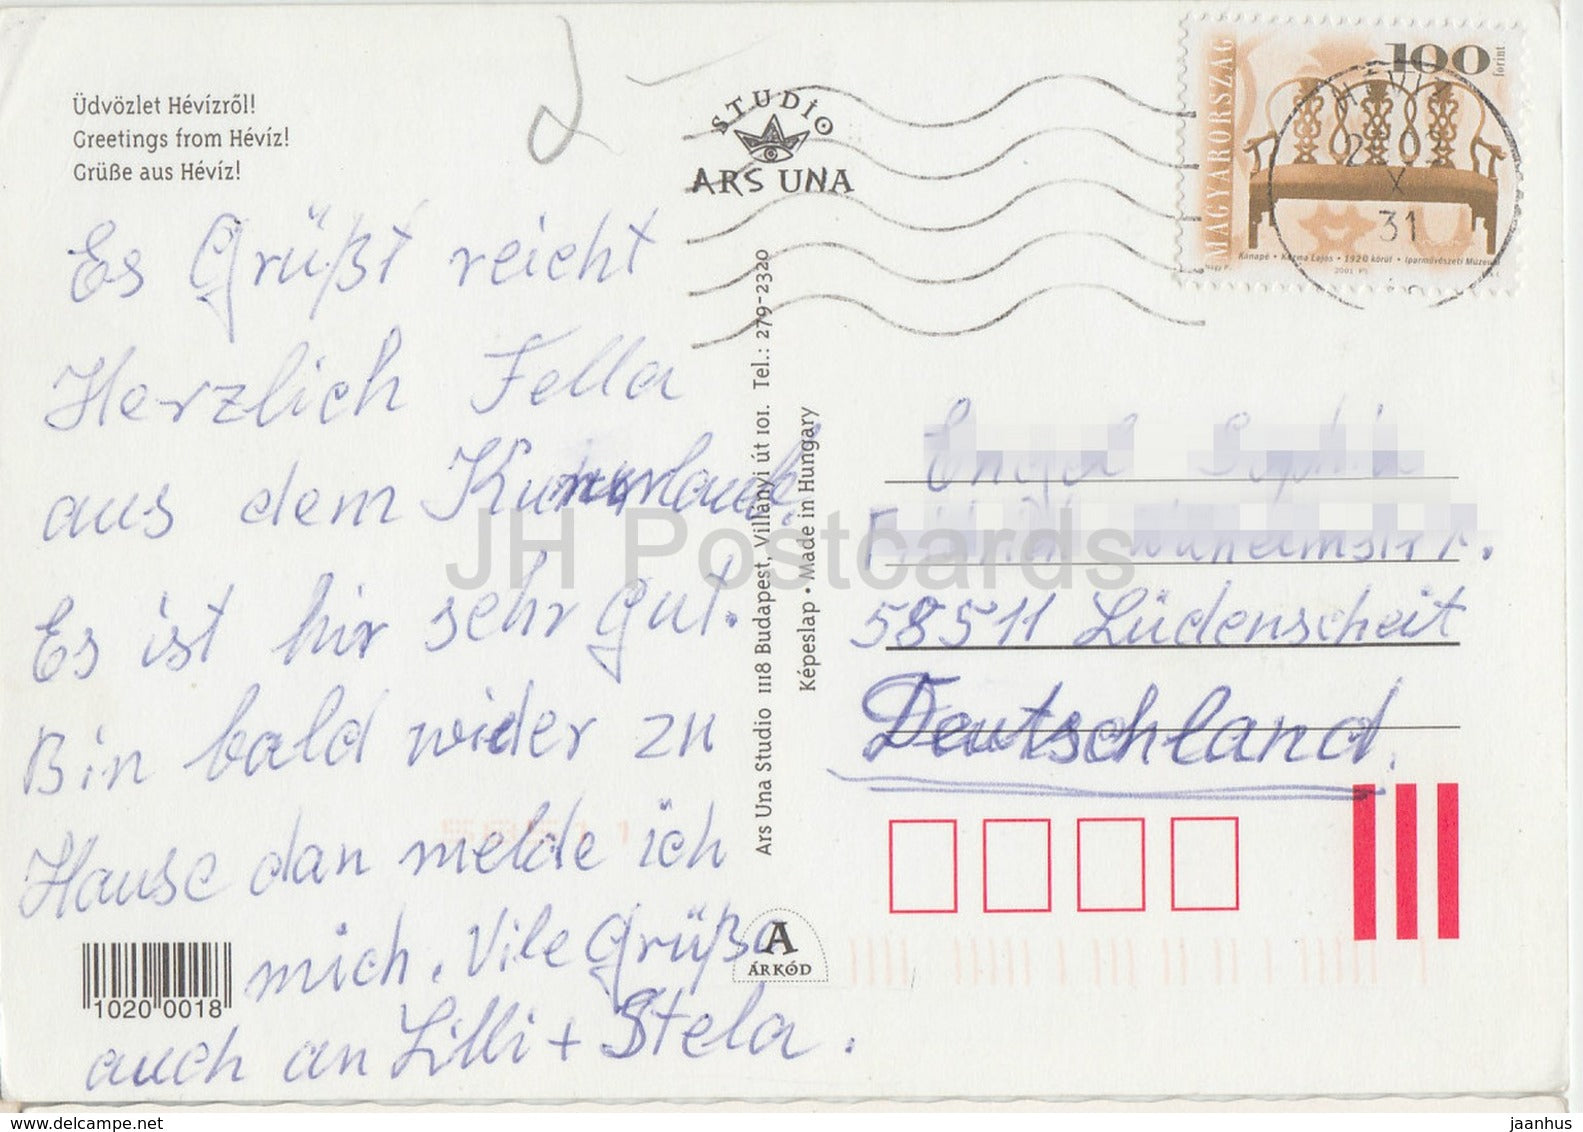 Üdvözlet Hévízről!
Greetings from Hévíz!
Grüße aus Hévíz!
STUDIO
ARS UNA
MAGYARORSZÁG
100
forint
Kanapé • Kozma Lajos • 1920 körül • Iparművészeti Múzeum
2001
HÉVÍZ
X
31
Es Grüßt reicht
Herzlich Fella
aus dem
Es ist hir sehr gut.
Bin bald wider zu
Hause dan melde ich
mich. Vile Grüße
auch an Lilli + Stela.
Ars Una Studio 1118 Budapest, Villányi út 101. Tel.: 279-2320
Képeslap • Made in Hungary
58511 Lüdenscheit
Deutschland.
A
ÁRKÓD
1020 0018
JH Postcards
www.delcampe.net
jaanhus